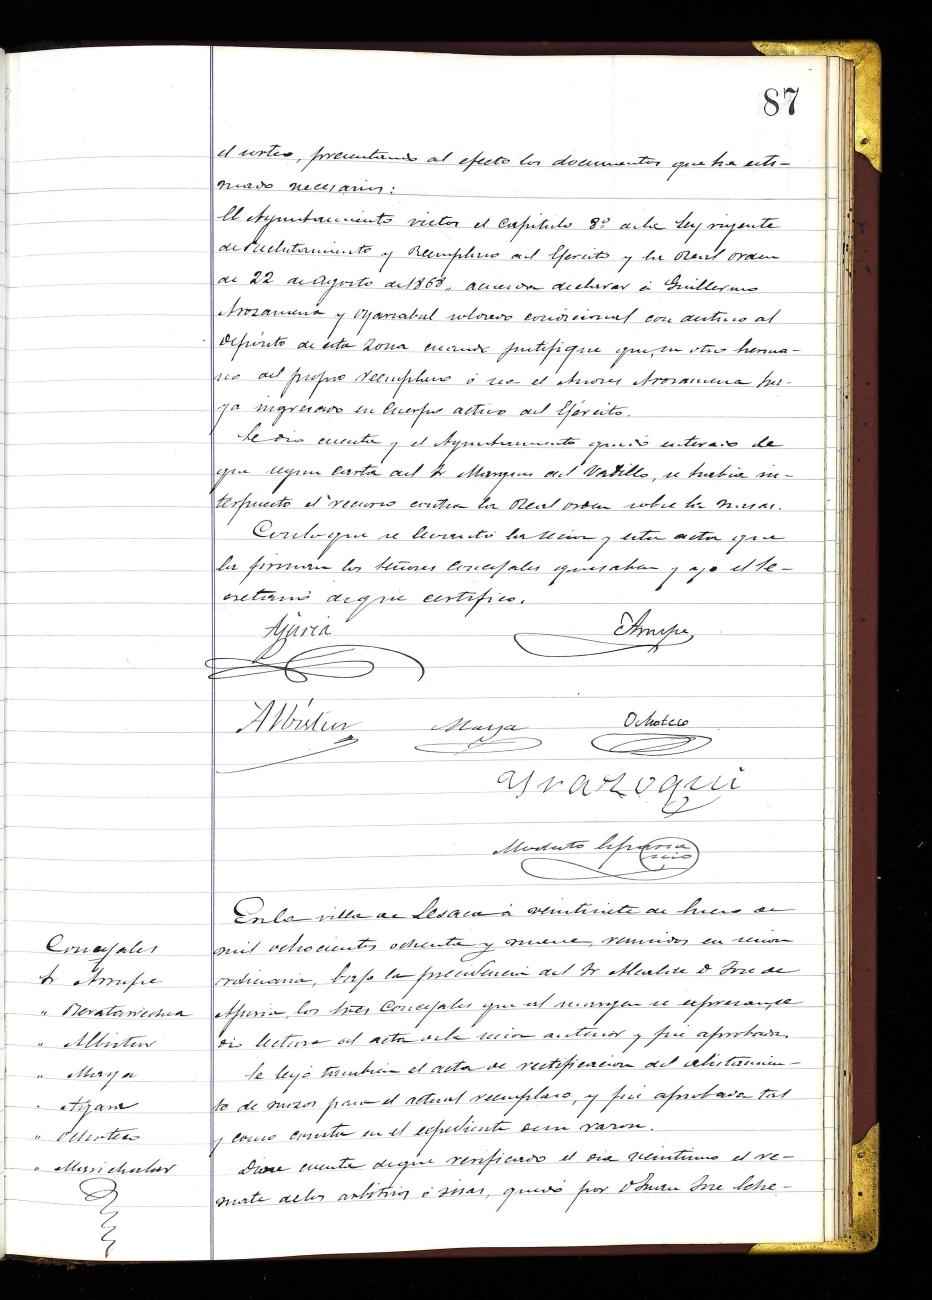 87
el sorteo, presentando al efecto los documentos que ha esti-
mado necesarios:
El Ayuntamiento vistos el Capítulo 8º de la ley vigente
de Reclutamiento y Reemplazo del Ejército y la Real orden
de 22 de Agosto de 1868, acuerda declarar á Guillermo
Arozamena y Oyarzabal soldado condicional con destino al
Depósito de esta Zona cuando justifique que, su otro herma-
no del propio reemplazo ó sea el Arozamena ha-
ya ingresado en Cuerpo activo del Ejército.
Se dio cuenta y el Ayuntamiento quedó enterado de
que segun carta del Sr Marques del Vadillo, se habia in-
terpuesto el recurso contra la Real orden sobre las
Con lo que se levantó la sesion y esta acta que
la firman los Señores Concejales que saben y yo el Se-
cretario de que certifico.
Ajuria
Arrupe
Albistur Maya Ochoteco
Yrazoqui
Modesto
En la villa de Lesaca á veintisiete de Enero de
mil ochocientos ochenta y nueve, reunidos en sesion
ordinaria, bajo la presidencia del Sr Alcalde D. Jose de
Ajuria, los Sres Concejales que al margen se expresan, se
dio lectura del acta de la sesion anterior y fué aprobada.
Se leyó tambien el acta de rectificacion del alistamien-
to de mozos para el actual reemplazo, y fué aprobada tal
y como consta en el expediente de su razon.
Diose cuenta de que verificado el dia veintiuno el re-
mate de los arbitrios ó sisas, quedó por D. Juan Jose Eche-
Concejales
Sr Arrupe
" Albistur
" Maya
" Ochoteco
" Marichalar